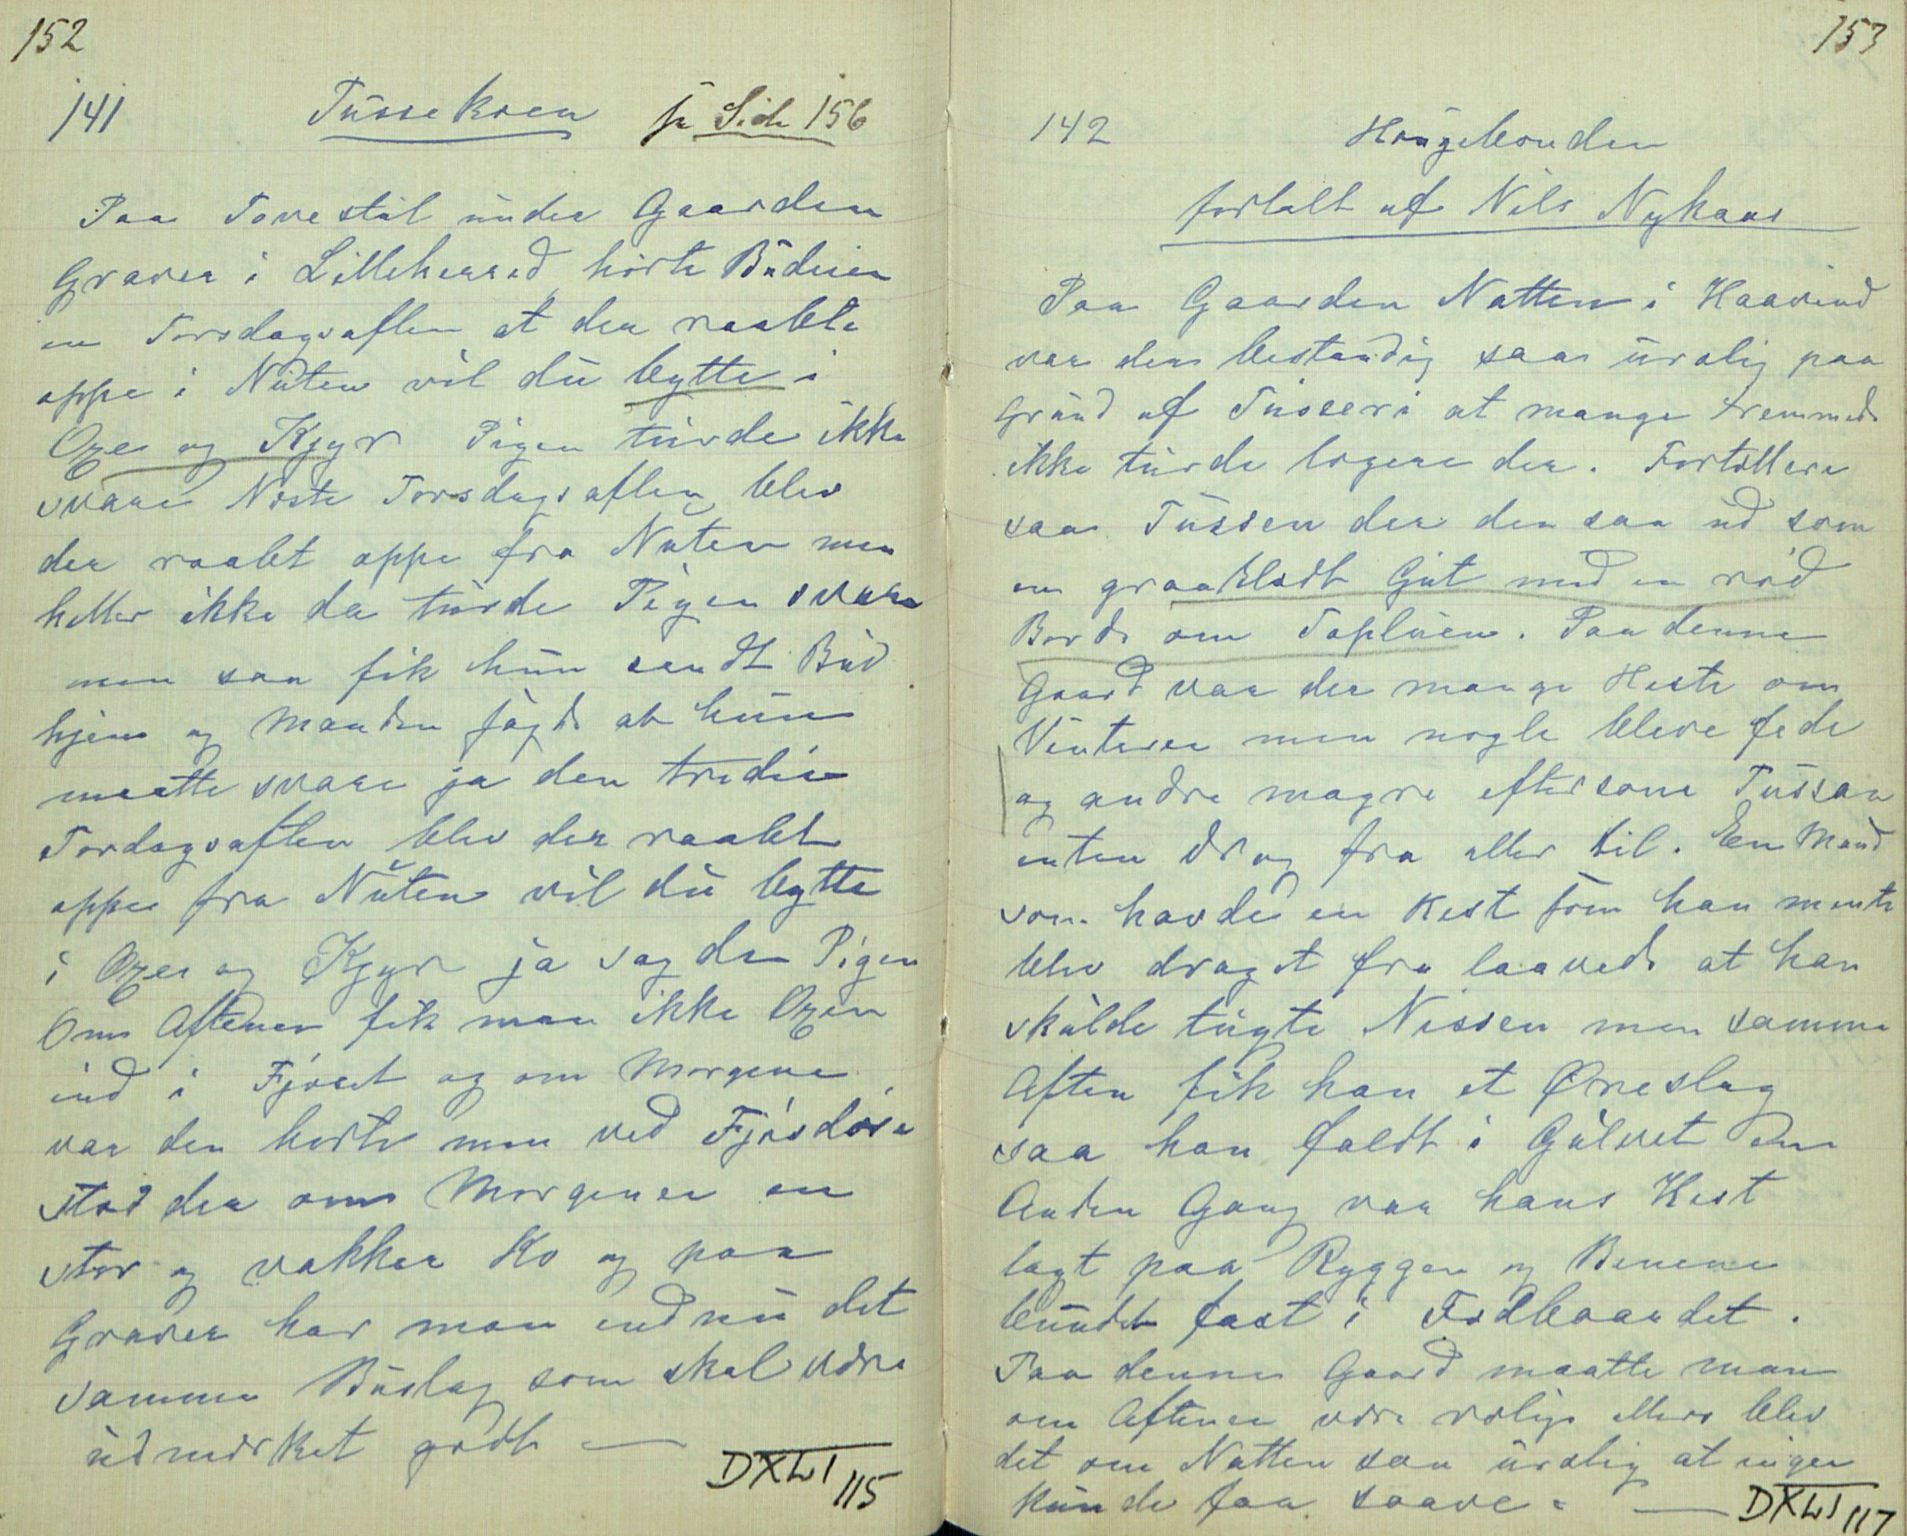 152
141 Tussekoen jr Side 156
Paa Tovestøl under Gaarden
Graver i Lilleherred hørte Budeien
en Torsdagsaften at der raabte
oppe i Nuten vil du bytte i
Oxer og Kjyr Pigen turde ikke
svare Neste Torsdags aften blev
der raabt oppe fra Nuten men
heller ikke da turde Pigen svare
men saa fik hun sendt Bud
hjem og Manden sagde at hun
maatte svare ja den tredie
Tordagsaften blev der raabt
oppe fra Nuten vil du bytte
i Oxer og Kjyr ja sagde Pigen
Om Aftenen fik man ikke Oxen
ind i Fjøset og om Morgenen
var den borte men ved Fjøsdøra
stod der om Morgenen en
stor og vakker Ko og paa
Graver har man endnu det
samme Buslag som skal være
udmerket godt —
DXLI 115
153
142 Haugebonden
fortalt af Nils Nyhaus
Paa Gaarden Natten i Haavind
var der bestandig saa urolig paa
Grund af Tusseri at mange Fremmede
ikke turde logere der. Fortellere
saa Tussen der den saa ud som
en graaklædt Gut med en rød
Bord om Topluen. Paa denne
Gaard var der mange Heste om
Vinteren men nogle bleve fede
og andre magre eftersom Tussen
enten drog fra eller til. En Mand
som havde en Hest som han mente
blev draget fra lavede at han
skulde tugte Nissen men samme
Aften fik han et Øreslag
saa han faldt i Gulvet En
Anden Gang var hans Hest
lagt paa Ryggen og Benene
bundet fast i Fodboardet.
Paa denne Gaard maatte man
om Aftenen være rolig ellers blev
det om Natten saa urolig at ingen
kunde faa saave. — DXLI 117